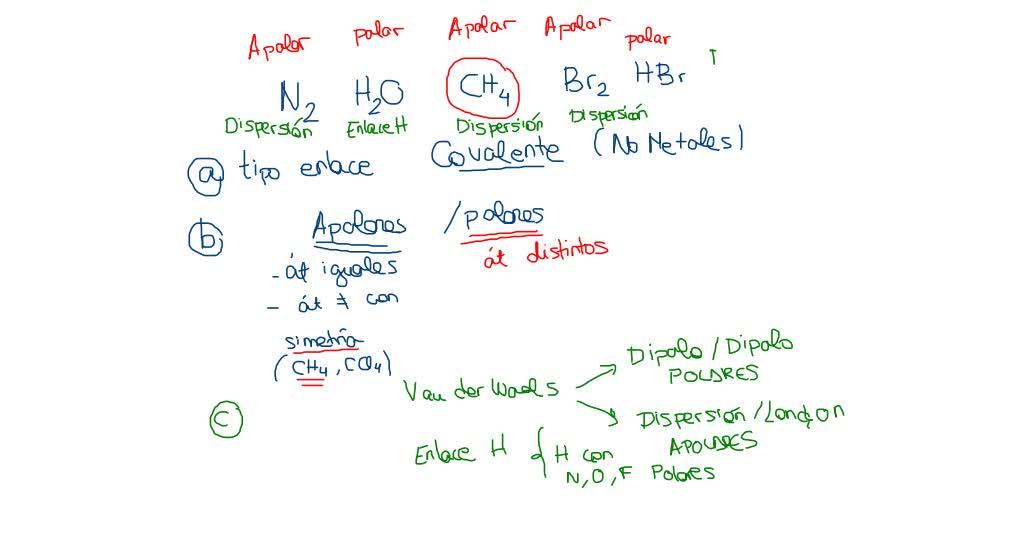 Apolar polar Apolar Apolar polar
N2 H2O CH4 Br2 HBr
Dispersión Enlace H Dispersión Dispersión
a) tipo enlace Covalente (No Metales)
b) Apolares / polares
- át iguales át distintos
- át ≠ con
simetría
(CH4, CCl4)
c) Van der Waals Dipolo / Dipolo
POLARES
Dispersión / London
APOLARES
Enlace H { H con
N, O, F Polares